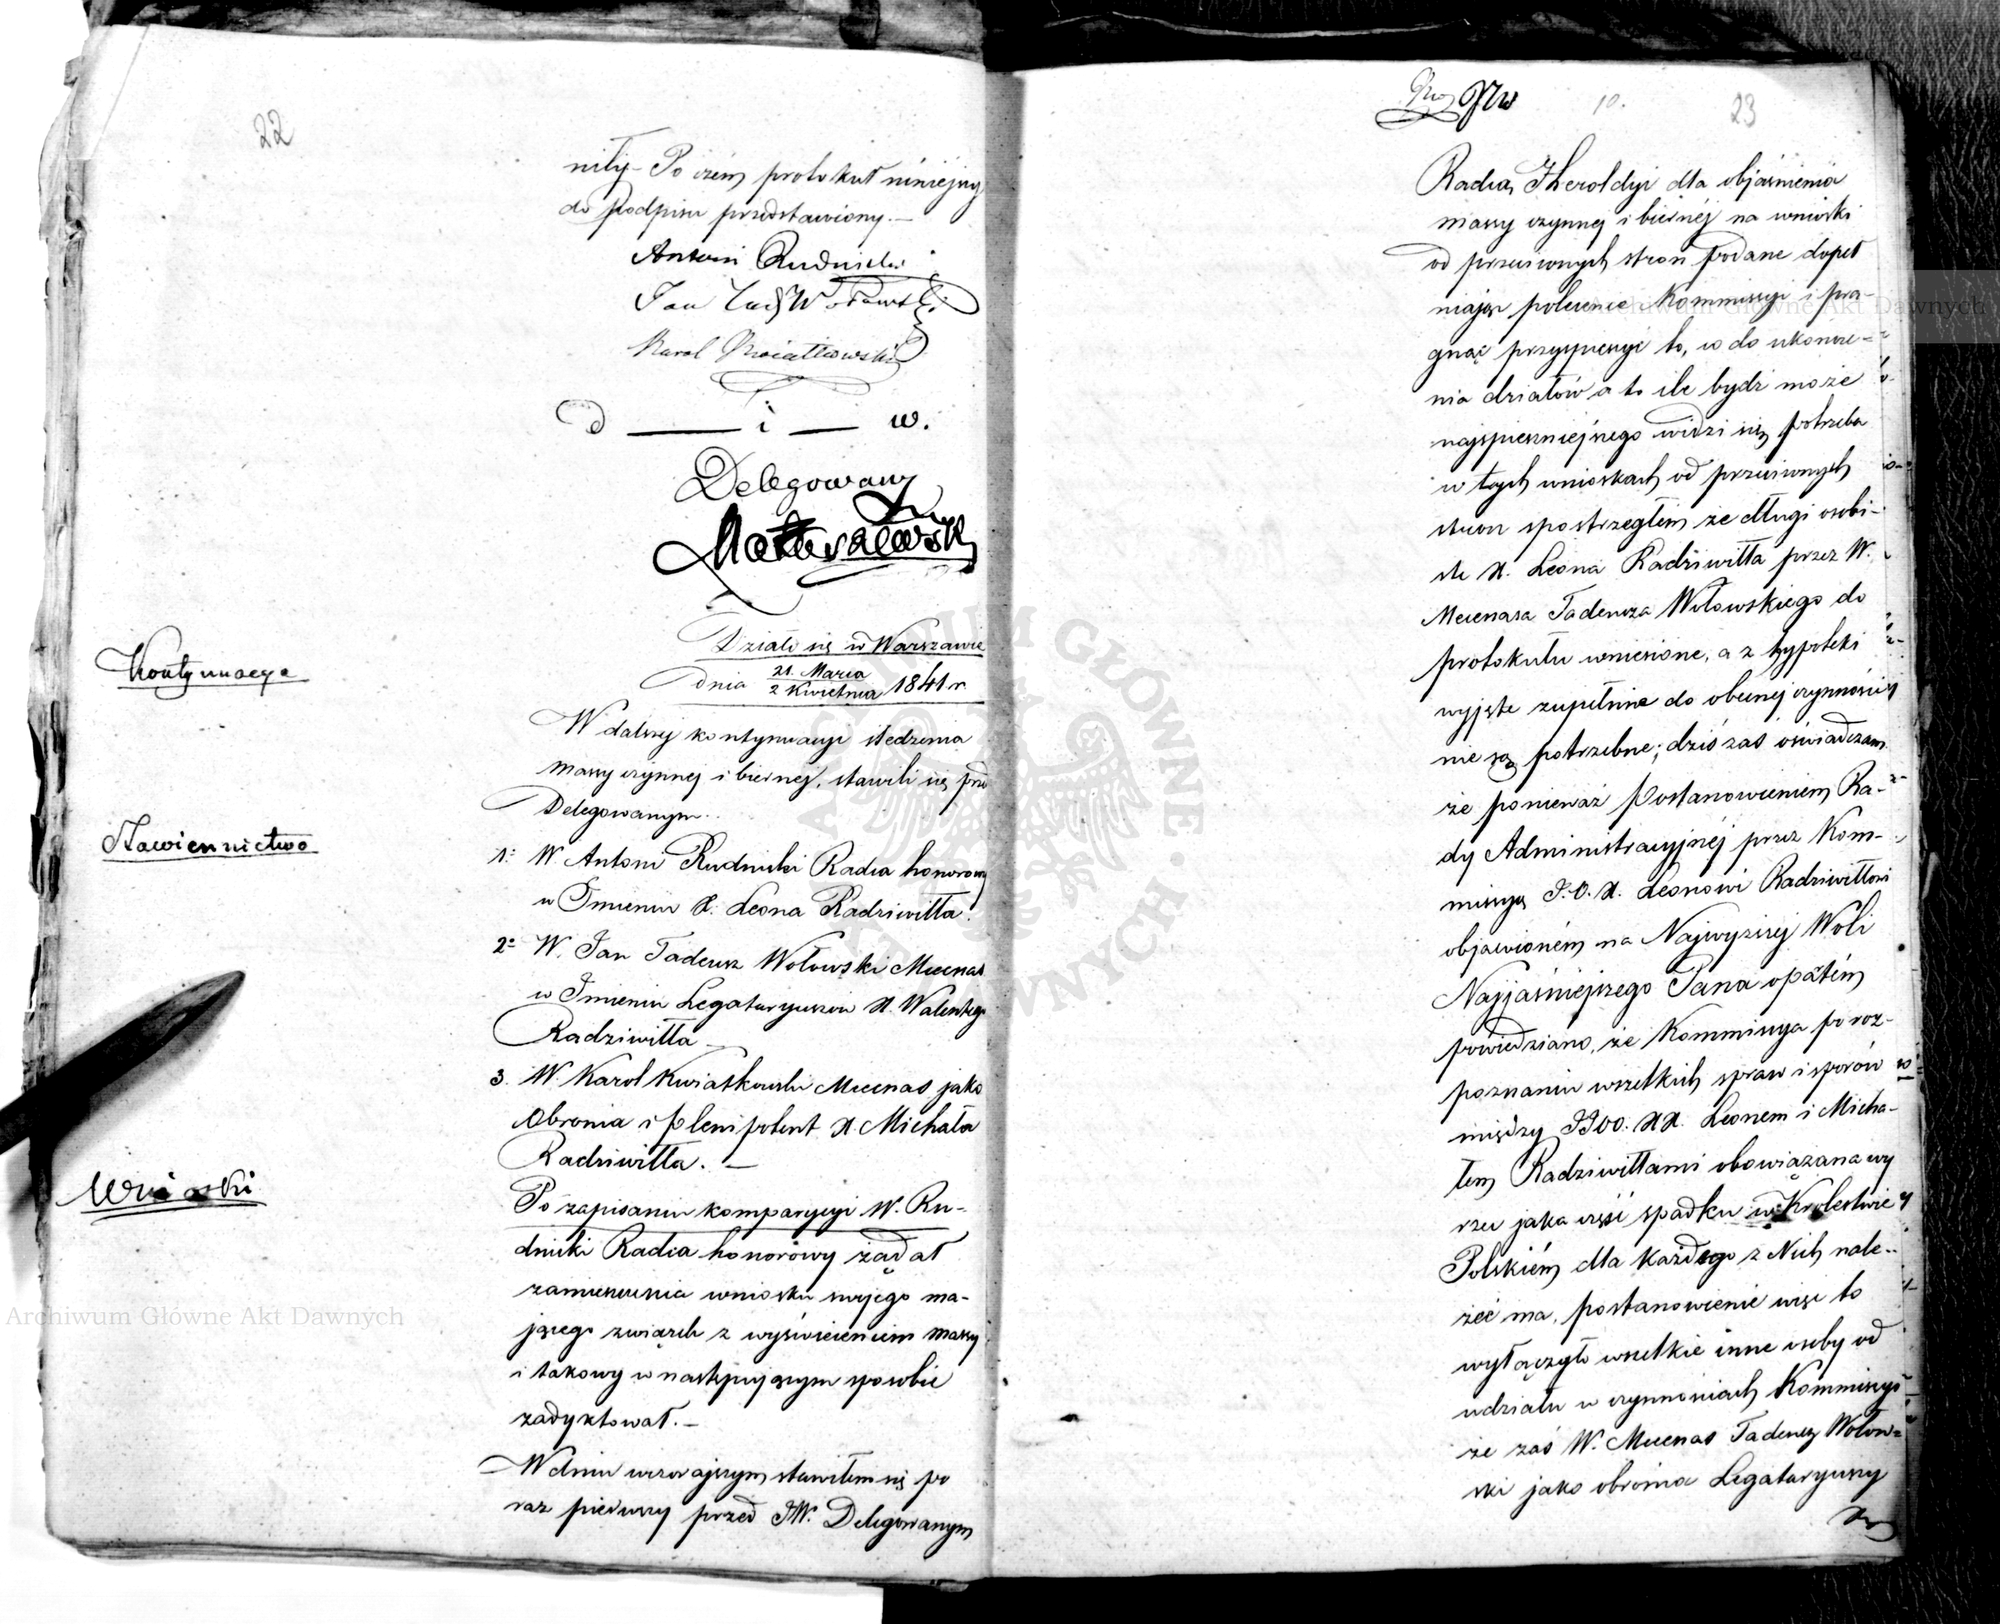 22
niły – Po czém protokuł niniejszy
do podpisu przedstawiony. —
Antoni Rudnicki
Jan Tad Wołowski
Karol Kwiatkowski
D — i — w.
Delegowany
Działo się w Warszawie
Kontynuacya
dnia 21. Marca / 2 Kwietnia 1841 r.
W dalszej kontynuacyi śledzenia
massy czynnej i biernej, stawili się prze
Delegowanym.
Stawiennictwo
1: W. Antoni Rudnicki Radca honorowy
w Imieniu X. Leona Radziwiłła.
2: W. Jan Tadeusz Wołowski Mecenas
w Imieniu Legataryuszów X. Walentego
Radziwiłła
3. W. Karol Kwiatkowski Mecenas jako
Obrońca i plenipotent X. Michała
Radziwiłła. —
Wnioski
Po zapisaniu komparycyi W. Ru-
dnicki Radca honorowy żądał
zamieszczenia wniosku swojego ma-
jącego związek z wyświeceniem massy
i takowy w następującym sposobie
zadyktował. —
W dniu wczorajszym stawiłem się po
raz pierwszy przed JW. Delegowanym
10.
23
Radcą Heroldyi dla objaśnienia
massy czynnej i biernéj na wnioski
od przeciwnych stron podane dopeł
niając polecenie Kommissyi i pra-
gnąc przyspieszyć to, co do ukończe-
nia działów a to ile bydź może
najspieszniejszego widzi się potrzeba
w tych wnioskach od przeciwnych
stron spostrzegłem że długi osobi-
ste X. Leona Radziwiłła przez W.
Mecenasa Tadeusza Wołowskiego do
protokułu wniesione, a z hypoteki
wyjęte zupełnie do obecnej czynności
nie są potrzebne; dziś zaś oświadczam
że ponieważ Postanowieniem Ra-
dy Administracyjnéj przez Kom-
missyą J.O. X. Leonowi Radziwiłłowi
objawioném na Najwyższej Woli
Najjaśniejszego Pana opartém
powiedziano, że Kommissya po roz-
poznaniu wszelkich spraw i sporów
między JJOO. XX. Leonem i Micha-
łem Radziwiłłami obowiązana wy
rzec jaka część spadku w Królestwie
Polskiém dla każdego z Nich nale-
żeć ma, postanowienie więc to
wyłączyło wszelkie inne osoby od
udziału w czynnościach Kommissyi
że zaś W. Mecenas Tadeusz Wołow-
ski jako obrońca Legataryuszy